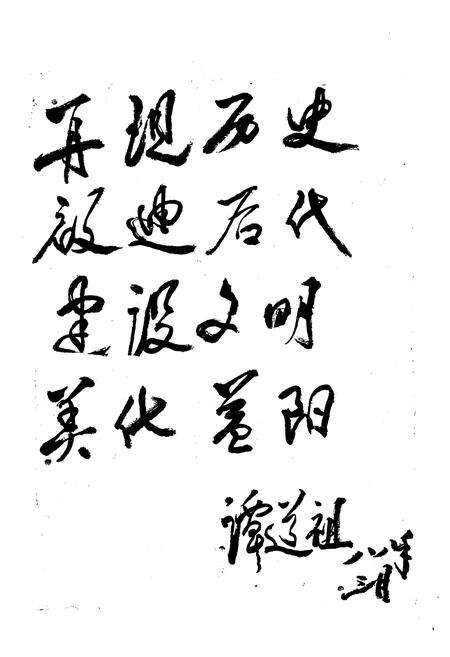 再现历史
启迪后代
建设文明
美化益阳
谭道祖
八八年
三月